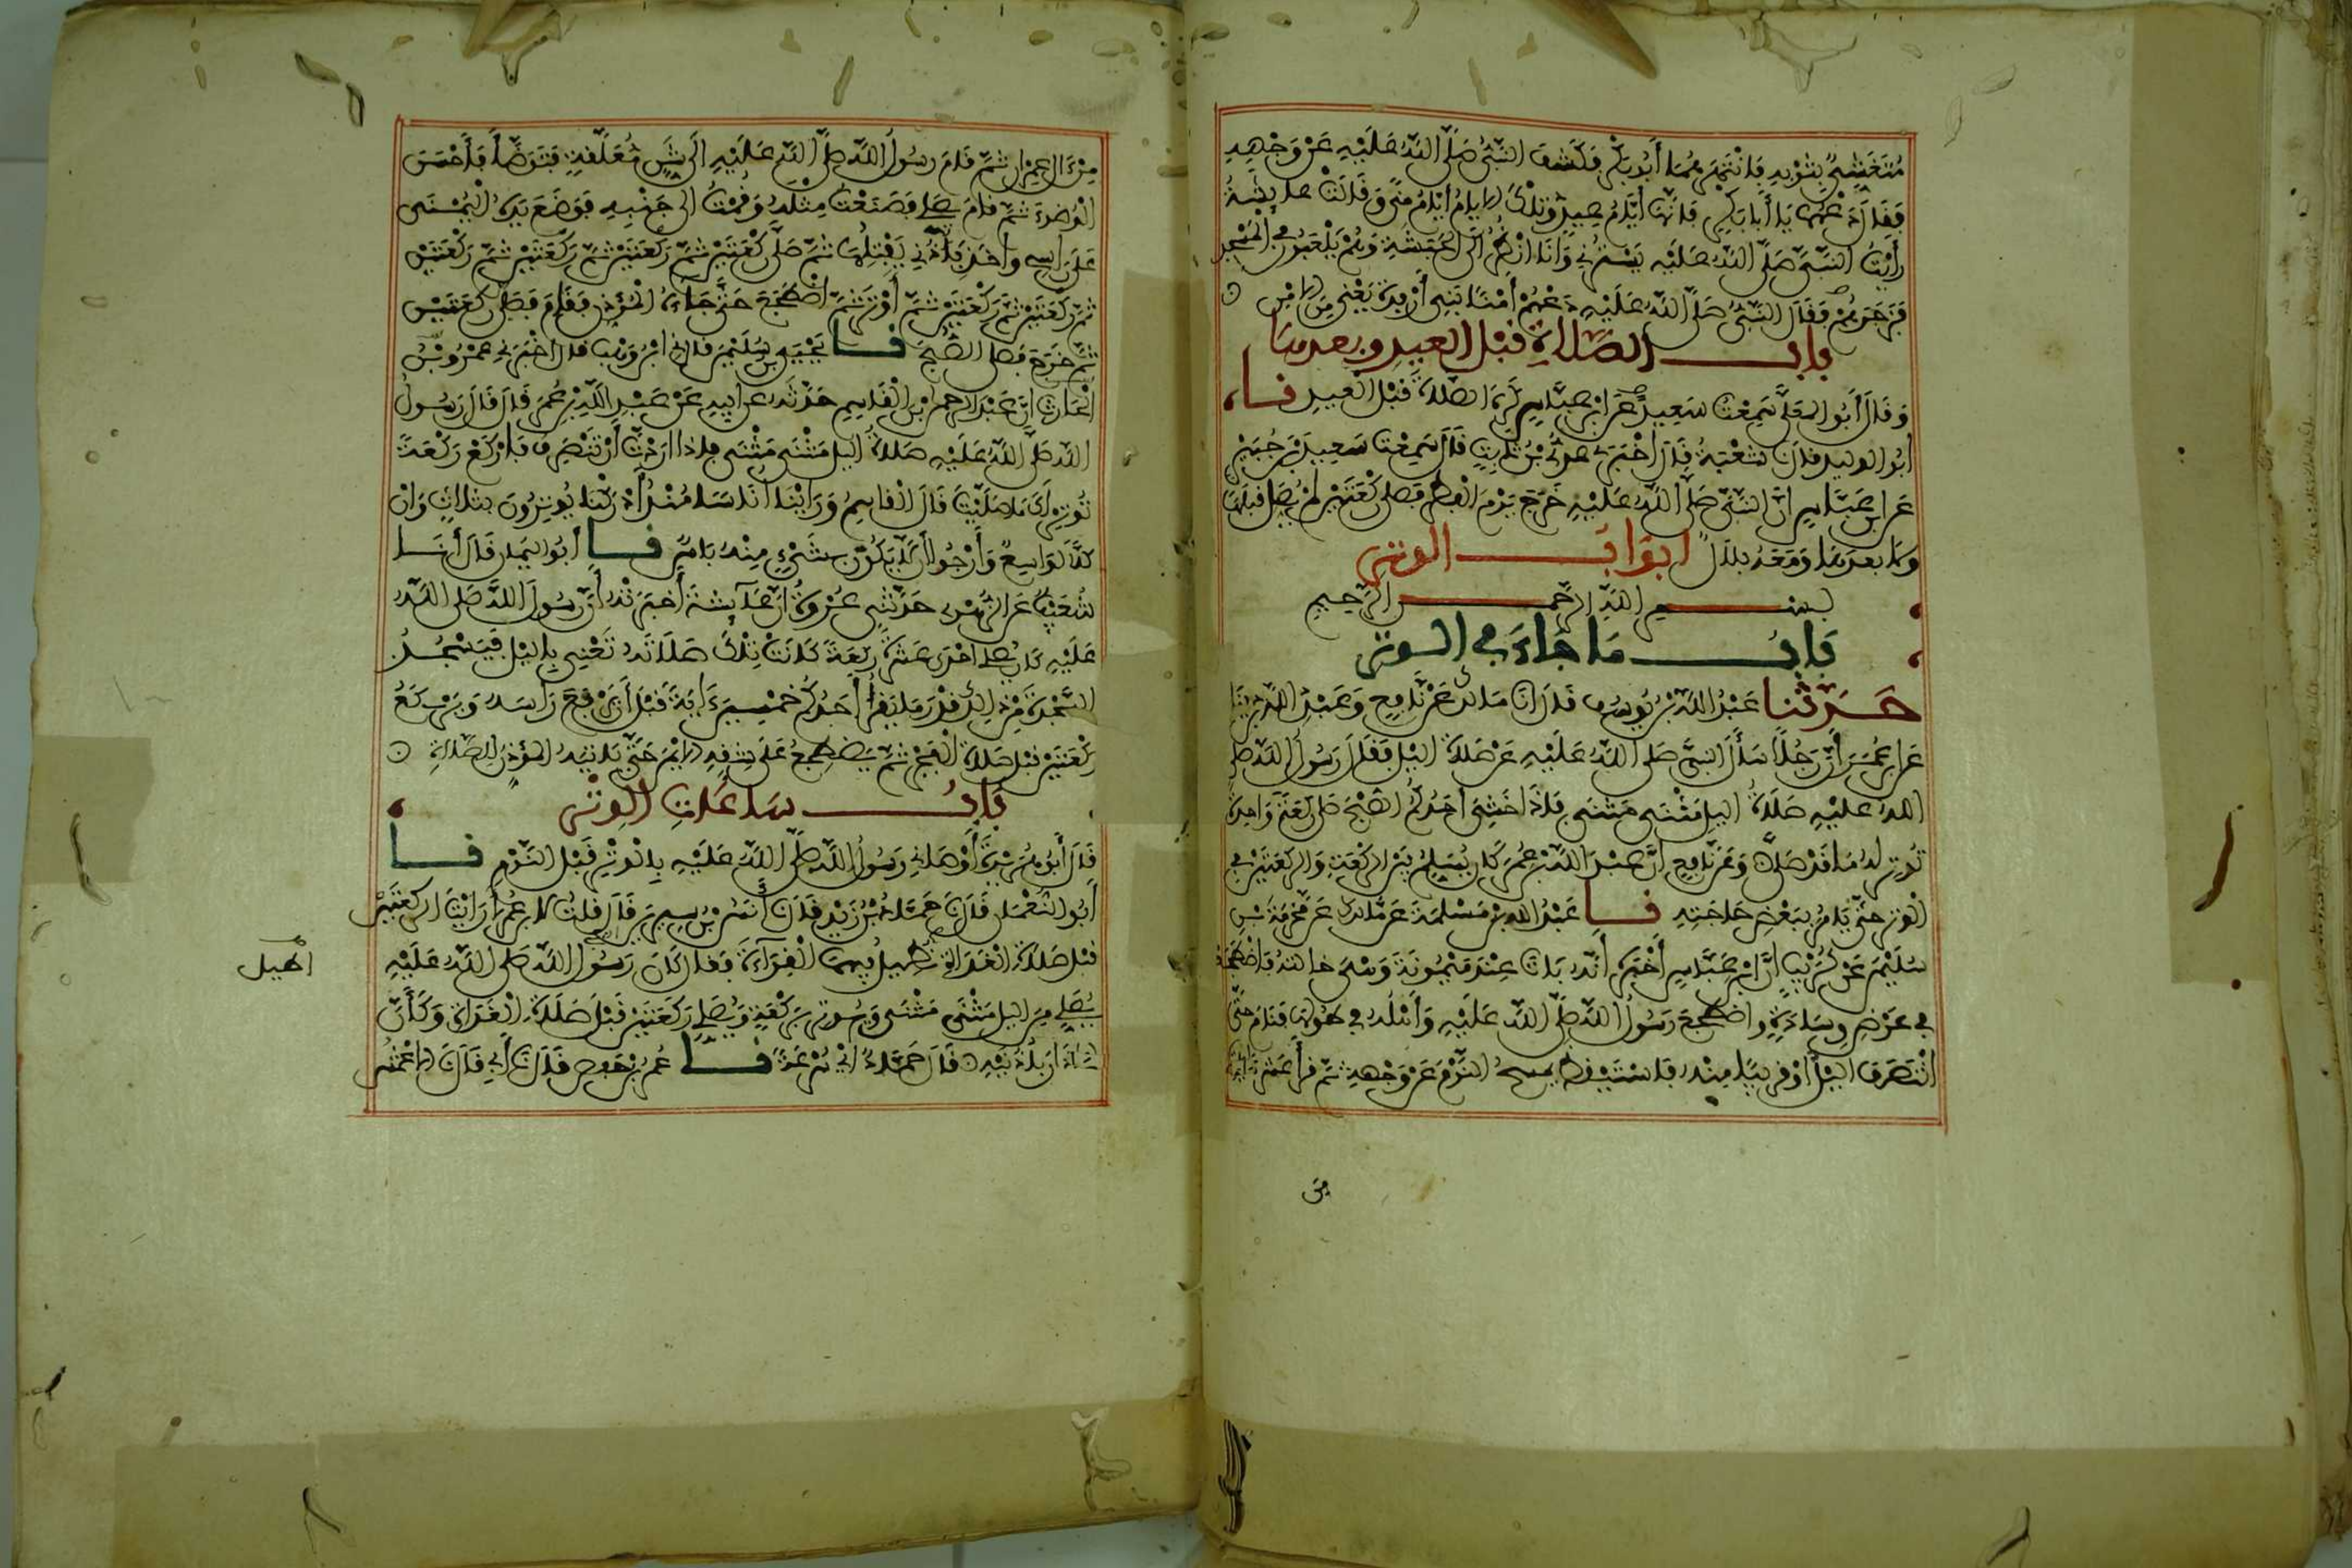 مُتَغَشٍّ بِثَوْبِهِ فَانْتَهَرَهُمَا أَبُو بَكْرٍ فَكَشَفَ النَّبِيُّ صَلَّى اللَّهُ عَلَيْهِ عَنْ وَجْهِهِ
فَقَالَ دَعْهُمَا يَا أَبَا بَكْرٍ فَإِنَّهَا أَيَّامُ عِيدٍ وَتِلْكَ الايامُ أَيَّامُ مِنًى وَقَالَتْ عايشَةُ
رَأَيْتُ النَّبِيَّ صَلَّى اللَّهُ عَلَيْهِ يَسْتُرُنِي وَأَنَا أَنْظُرُ إِلَى الْحَبَشَةِ وَهُمْ يَلْعَبُونَ فِي الْمَسْجِدِ
فَزَجَرَهُمْ فَقَالَ النَّبِيُّ صَلَّى اللَّهُ عَلَيْهِ دَعْهُمْ أَمْنًا بَنِي أَرْفِدَةَ يَعْنِي مِنَ الامْنِ
بَابُ الصَّلَاةِ قَبْلَ الْعِيدِ وَبَعْدَهَا
وَقَالَ أَبُو الْمُعَلَّى سَمِعْتُ سَعِيدًا عَنِ ابْنِ عَبَّاسٍ كَرِهَ الصَّلَاةَ قَبْلَ الْعِيدِ نَا
أَبُو الْوَلِيدِ قَالَ نَا شُعْبَةُ قَالَ أَخْبَرَنِي عَدِيُّ بْنُ ثَابِتٍ قَالَ سَمِعْتُ سَعِيدَ بْنَ جُبَيْرٍ
عَنِ ابْنِ عَبَّاسٍ أَنَّ النَّبِيَّ صَلَّى اللَّهُ عَلَيْهِ خَرَجَ يَوْمَ الْفِطْرِ فَصَلَّى رَكْعَتَيْنِ لَمْ يُصَلِّ قَبْلَهَا
وَلَا بَعْدَهَا وَمَعَهُ بِلَالٌ أَبْوَابُ الْوِتْرِ
بِسْمِ اللَّهِ الرَّحْمَنِ الرَّحِيمِ
بَابُ مَا جَاءَ فِي الْوِتْرِ
حَدَّثَنَا عَبْدُ اللَّهِ بْنُ يُوسُفَ قَالَ أَنَا مَالِكٌ عَنْ نَافِعٍ وَعَبْدِ اللَّهِ بْنِ دِينَارٍ
عَنِ ابْنِ عُمَرَ أَنَّ رَجُلًا سَأَلَ النَّبِيَّ صَلَّى اللَّهُ عَلَيْهِ عَنْ صَلَاةِ اليْلِ فَقَالَ رَسُولُ اللَّهِ صَلَّى
اللَّهُ عَلَيْهِ صَلَاةُ اليْلِ مَثْنَى مَثْنَى فَإِذَا خَشِيَ أَحَدُكُمُ الصُّبْحَ صَلَّى رَكْعَةً وَاحِدَةً
تُوتِرُ لَهُ مَا قَدْ صَلَّى وَعَنْ نَافِعٍ أَنَّ عَبْدَ اللَّهِ بْنَ عُمَرَ كَانَ يُسَلِّمُ بَيْنَ الرَّكْعَةِ وَالرَّكْعَتَيْنِ فِي
الْوِتْرِ حَتَّى يَامُرَ بِبَعْضِ حَاجَتِهِ نَا عَبْدُ اللَّهِ بْنُ مَسْلَمَةَ عَنْ مَالِكٍ عَنْ مَخْرَمَةَ بْنِ
سُلَيْمَنَ عَنْ كُرَيْبٍ أَنَّ ابْنَ عَبَّاسٍ أَخْبَرَهُ أَنَّهُ بَاتَ عِنْدَ مَيْمُونَةَ وَهْيَ خَالَتُهُ فَاضْطَجَعْتُ
فِي عَرْضِ وِسَادَةٍ وَاضْطَجَعَ رَسُولُ اللَّهِ صَلَّى اللَّهُ عَلَيْهِ وَأَهْلُهُ فِي طُولِهَا فَنَامَ حَتَّى
انْتَصَفَ اليْلُ أَوْ قَرِيبًا مِنْهُ فَاسْتَيْقَظَ يَمْسَحُ النَّوْمَ عَنْ وَجْهِهِ ثُمَّ قَرَأَ عَشْرَ آيَاتٍ
مِنْ
مِنْ ءَالِ عِمْرَانَ ثُمَّ قَامَ رَسُولُ اللَّهِ صَلَّى اللَّهُ عَلَيْهِ إِلَى شَنٍّ مُعَلَّقَةٍ فَتَوَضَّأَ فَأَحْسَنَ
الْوُضُوءَ ثُمَّ قَامَ يُصَلِّي فَصَنَعْتُ مِثْلَهُ وَقُمْتُ إِلَى جَنْبِهِ فَوَضَعَ يَدَهُ الْيُمْنَى
عَلَى رَاسِي وَأَخَذَ بِأُذُنِي يَفْتِلُهَا ثُمَّ صَلَّى رَكْعَتَيْنِ ثُمَّ رَكْعَتَيْنِ ثُمَّ رَكْعَتَيْنِ ثُمَّ رَكْعَتَيْنِ
ثُمَّ رَكْعَتَيْنِ ثُمَّ رَكْعَتَيْنِ ثُمَّ أَوْتَرَ ثُمَّ اضْطَجَعَ حَتَّى جَاءَهُ الْمُؤَذِّنُ فَقَامَ فَصَلَّى رَكْعَتَيْنِ
ثُمَّ خَرَجَ فَصَلَّى الصُّبْحَ نَا يَحْيَى بْنُ سُلَيْمَنَ قَالَ نَا ابْنُ وَهْبٍ قَالَ أَخْبَرَنِي عَمْرُو بْنُ
الْحَارِثِ أَنَّ عَبْدَ الرَّحْمَنِ بْنَ الْقَاسِمِ حَدَّثَهُ عَنْ أَبِيهِ عَنْ عَبْدِ اللَّهِ بْنِ عُمَرَ قَالَ قَالَ رَسُولُ
اللَّهِ صَلَّى اللَّهُ عَلَيْهِ صَلَاةُ اليْلِ مَثْنَى مَثْنَى فَإِذَا أَرَدْتَ أَنْ تَنْصَرِفَ فَارْكَعْ رَكْعَةً
تُوتِرُ لَكَ مَا صَلَّيْتَ قَالَ الْقَاسِمُ وَرَأَيْنَا أُنَاسًا مُنْذُ أَدْرَكْنَا يُوتِرُونَ بِثَلَاثٍ وَإِنَّ
كُلًّا لَوَاسِعٌ وَأَرْجُو أَن لَّا يَكُونَ بِشَيْءٍ مِنْهُ بَاسٌ نَا أَبُو الْيَمَانِ قَالَ أَنَا
شُعَيْبٌ عَنِ الزُّهْرِي حَدَّثَنِي عُرْوَةُ أَنَّ عَائِشَةَ أَخْبَرَتْهُ أَنَّ رَسُولَ اللَّهِ صَلَّى اللَّهُ
عَلَيْهِ كَانَ يُصَلِّي إِحْدَى عَشْرَةَ رَكْعَةً كَانَتْ تِلْكَ صَلَاتَهُ تَعْنِي بِاليْلِ فَيَسْجُدُ
السَّجْدَةَ مِنْ ذَلِكَ قَدْرَ مَا يَقْرَأُ أَحَدُكُمْ خَمْسِينَ ءَايَةً قَبْلَ أَنْ يَرْفَعَ رَأْسَهُ وَيَرْكَعُ
رَكْعَتَيْنِ قَبْلَ صَلَاةِ الْفَجْرِ ثُمَّ يَضْطَجِعُ عَلَى شِقِّهِ الايْمَنِ حَتَّى يَاتِيَهُ الْمُؤَذِّنُ لِلصَّلَاةِ
بَابُ سَاعَاتِ الْوِتْرِ
قَالَ أَبُو هُرَيْرَةَ أَوْصَانِي رَسُولُ اللَّهِ صَلَّى اللَّهُ عَلَيْهِ بِالْوِتْرِ قَبْلَ النَّوْمِ نَا
أَبُو النُّعْمَانِ قَالَ نَا حَمَّادُ بْنُ زَيْدٍ قَالَ نَا أَنَسُ بْنُ سِيرِينَ قَالَ قُلْتُ لِابْنِ عُمَرَ أَرَأَيْتَ الرَّكْعَتَيْنِ
قَبْلَ صَلَاةِ الْغَدَاةِ نُطِيلُ فِيهِمَا الْقِرَاءَةَ فَقَالَ كَانَ رَسُولُ اللَّهِ صَلَّى اللَّهُ عَلَيْهِ
يُصَلِّي مِنَ اليْلِ مَثْنَى مَثْنَى وَيُوتِرُ بِرَكْعَةٍ وَيُصَلِّي رَكْعَتَيْنِ قَبْلَ صَلَاةِ الْغَدَاةِ وَكَأَنَّ
الاذَانَ بِأُذْنَيْهِ قَالَ حَمَّادٌ أَيْ سُرْعَةً نَا عُمَرُ بْنُ حَفْصٍ قَالَ نَا أَبِي قَالَ نَا الاعْمَشُ
اطيل